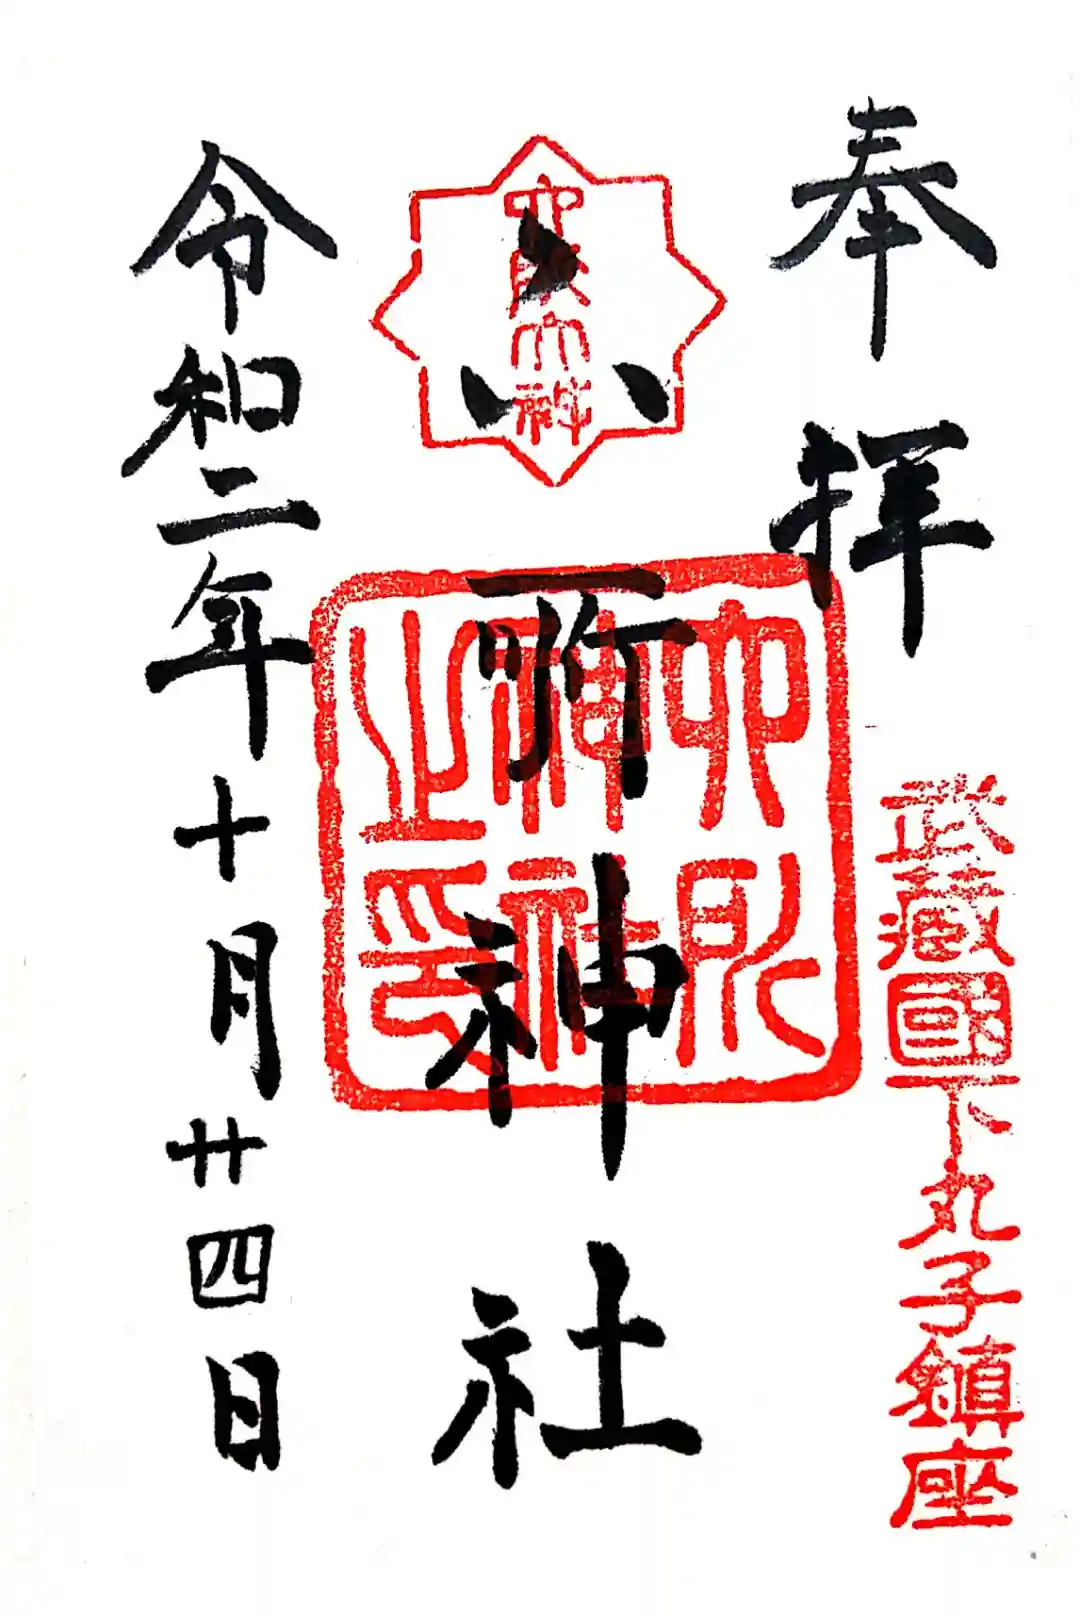 奉拝
武蔵國下丸子鎮座
六所神社
六所神社之印
令和二年十月廿四日